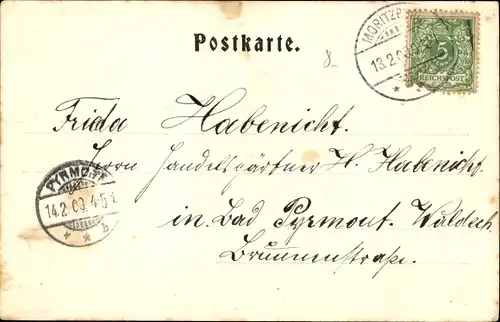 Postkarte.
8-
13.2.00
5
REICHSPOST
Frida Habenicht.
Herrn Handelsgärtner H. Habenicht
in Bad Pyrmont. Waldeck
Brunnenstraße.
PYRMONT
14.2.00. 4-5
* * b